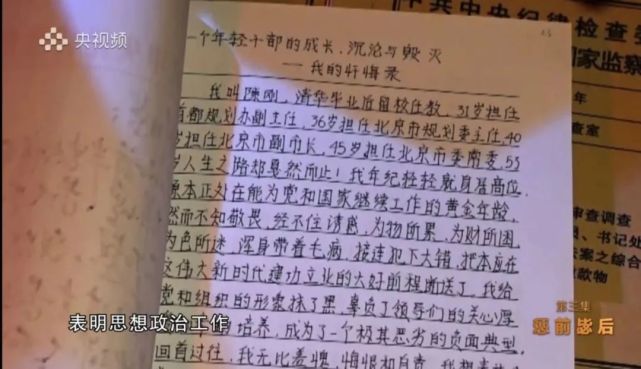 央视频
中共中央纪律检查
国家监察
年
查室
审查调查
书记处
案之综合
款物
个年轻干部的成长、沉沦与毁灭
——我的忏悔录
我叫陈刚，清华毕业后留校任教，31岁担任
首都规划办副主任，36岁担任北京市规划委主任，40
岁担任北京市副市长，45岁担任北京市委常委，55
岁人生之路却戛然而止！我年纪轻轻就身居高位，
原本正处在能为党和国家继续工作的黄金年龄，
然而不知敬畏，经不住诱惑，为物所累，为财所困，
为色所迷，浑身带着毛病，接连犯下大错，把本应在
这伟大新时代建功立业的大好前程断送了。我给
党和组织的形象抹了黑，辜负了领导们的关心厚
培养，成为了一个极其恶劣的负面典型。
回首过往，我无比羞愧、悔恨和自责，我想
表明思想政治工作
第三集
惩前毖后